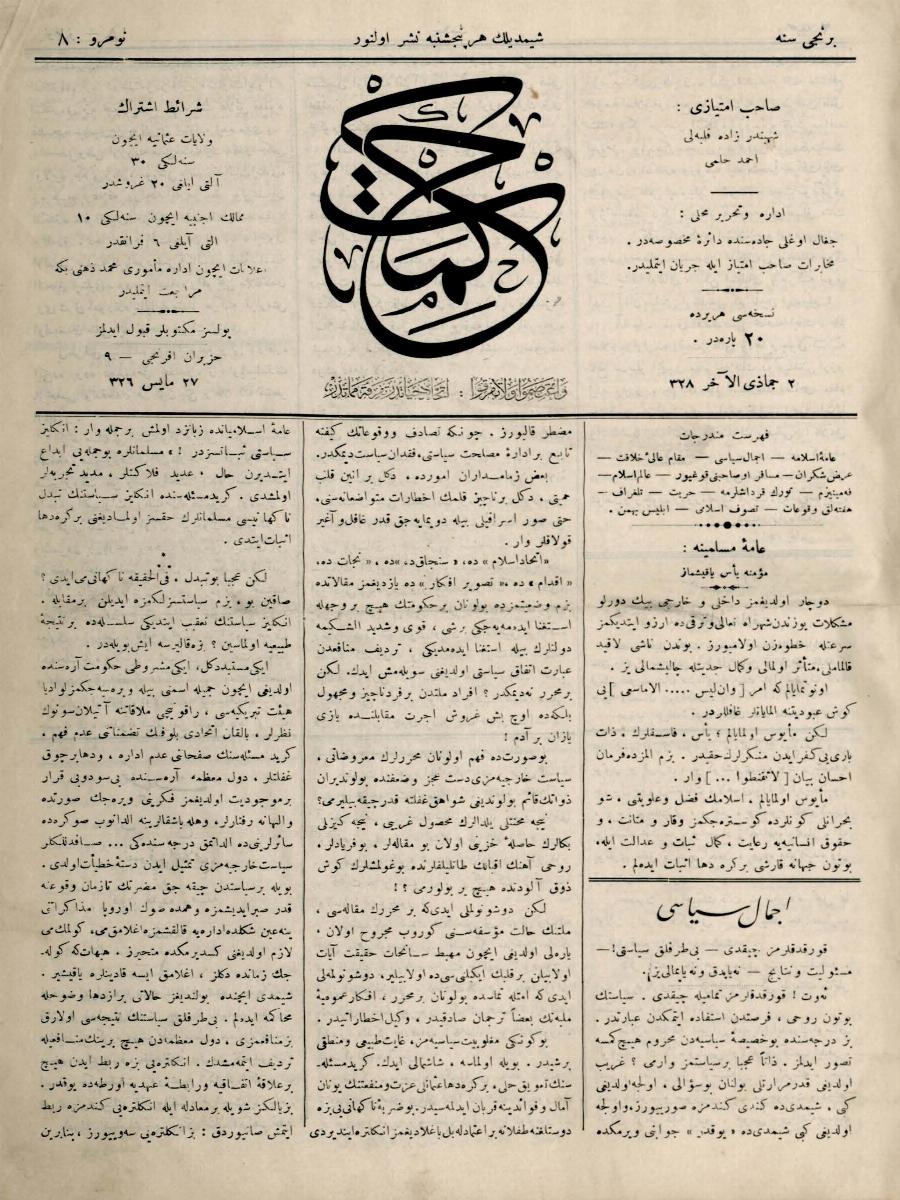 برنجی سنه
شیمدیلك هر پنجشنبه نشر اولنور
نومرو : ٨
صاحب امتیازی :
شهبندر زاده فلبه‌لی
احمد حلمی
اداره وتحریر محلی :
جغال اوغلی جاده‌سنده دائرهٔ مخصوصه‌در .
مخابرات صاحب امتیاز ایله جریان ایتملیدر.
نسخه‌سی هریرده
٢٠ پاره‌در .
٢ جماذی الآخر ٣٢٨
حكمت
واعتصموا ولاتفرقوا : اتحاد حیاتدر تفرقه مماتدر
شرائط اشتراك
ولایات عثمانیه ایچون
سنه‌لكی ٣٠
آلتی آیلغی ٢٠ غروشدر
ممالك اجنبیه ایچون سنه‌لكی ١٠
التی آیلغی ٦ فرانقدر
اعلانات ایچون اداره مأموری محمد ذهنی بكه
مراجعت ایتملیدر
پولسز مكتوبلر قبول ایدلمز
حزیران افرنجی — ٩
٢٧ مایس ٣٢٦
فهرست مندرجات
عامهٔ اسلامه — اجمال سیاسی — مقام عالیٔ خلافت —
عرض شكران — مسافر اوصاحبنی قوغیور — عالم اسلام —
فه‌مینیزم — تورك قرداشلرمه — حریت — تلغراف —
هفته‌لق وقوعات — تصوف اسلامی — ابلیس بهمن .
عامهٔ مسلمینه :
مؤمنه یأس یاقیشماز
دوچار اولدیغمز داخلی و خارجی بیك دورلو
مشكلات یوزندن شهراه تعالی وترقی‌ده ارزو ایتدیكمز
سرعتله خطوه‌زن اولامیورز . بوندن ناشی لاقید
قالماملی، متأثر اولمالی وكمال جدیتله چالیشمالی یز .
اونوتمایالم كه امر [ وان لیس ..... الاماسعی ] یی
كوش عبودیتنه المایانلر غافللردر .
لكن مأیوس اولمایالم ؛ یأس ، فاسقلرك . ذات
باری یی كفر ایدن منكرلرك حقیدر . بزم المزده فرمان
احسان بیان [ لاتقنطوا ... ] وار .
مأیوس اولمایالم . اسلامك فضل وعلویتنی ، شو
بحرانلی كونلرده كوستره‌جكمز وقار و متانت ، و
حقوق انسانیه‌یه رعایت ، كمال ثبات و عدالت ایله،
بوتون جهانه قارشی بركره دها اثبات ایده‌لم .
اجمال سیاسی
قورقدقلرمز چیقدی — بی طرفلق سیاستی!—
مسئولیت ونتایج — نه‌یاپدق ونه یاپمالی یز؟.
نه‌وت ! قورقدقلرمز تمامیله چیقدی . سیاستك
بوتون روحی ، فرصتدن استفاده ایتمكدن عبارتدر .
بز درجه‌سنده بوخصیصهٔ سیاسیه‌دن محروم هیچ كیمسه
تصور ایدلمز . ذاتاً عجبا برسیاستمز وارمی ؟ غریب
اولدیغی قدر مرارتلی بولنان بوسؤالی ، اولجه اولدیغی
كبی . شیمدی‌ده كندی كندمزه صورییورز، واولجه
اولدیغی كبی شیمدی‌ده « یوقدر » جوابنی ویرمكده
مضطر قالیورز . چونكه تصادف ووقوعاتك كیفنه
تابع بر ادارهٔ مصلحت سیاستی، فقدان سیاست دیمكدر.
بعض زمامداران اموره ، دكل بر انین قلب
حمیتی ، دكل بر ناچیز قلمك اخطارات متواضعانه‌سی،
حتی صور اسرافیلی بیله دویمایه‌جق قدر غافل وآغیر
قولاقلر وار .
« اتحاد اسلام » ده، « سنجاق » ده، « نجات » ده،
« اقدام » ده ، « تصویر افكار » ده یازدیغمز مقالاتده
بزم وضعیتمزده بولونان برحكومتك هیچ بر وجهله
استغنا ایده‌میه‌جكی برشی ، قوی وشدید الشكیمه
دولتلرك بیله استغنا ایده‌مدیكی ، تردیف منافعدن
عبارت اتفاق سیاستی اولدیغنی سویله‌مش ایدك. لكن
برمحرر نه‌دیمكدر ؟ افراد ملتدن برفرد ناچیز ومجهول
بلكه‌ده اوچ بش غروش اجرت مقابلنده یازی
یازان بر آدم !
بوصورت‌ده فهم اولونان محررلرك معروضاتی .
سیاست خارجیه‌مزی دست عجز وضعفنده بولوندیران
ذواتك قائم بولوندیغی شواهق غفلته قدر چیقه بیلیرمی؟
نیجه محنتلی ییلدلرك محصول غریبی ، نیجه كیزلی
بكالرك حاصلهٔ حزینی اولان بو مقاله‌لر ، بوفریادلر .
روحی آهنك اقبالك طاتلیلقلرنده بوغولمشلرك كوش
ذوق آلودنده هیچ یر بولورمی ؟ !
لكن دوشونولملی ایدی كه بر محررك مقاله‌سی ،
ملتنك حالت مؤسفه‌سنی كوروب مجروح اولان ،
یاره‌لی اولدیغی ایچون مهبط سانحات حقیقت آیات
اولابیلن برقلبك ایكیلتی‌سی‌ده اولابیلیر، دوشونولملی
ایدی كه امثله تماسده بولونان برمحرر ، افكار عمومیهٔ
ملیه‌نك بعضاً ترجمان صادقیدر ، وكیل اخطاراتیدر .
بوكونكی مغلوبیت سیاسیه‌مز، غایت طبیعی ومنطقی
برشیدر . بویله اولماسه . شاشمالی ایدك. كرید مسئله-
سنك تعویق حلی ، بركره دها عثمانلی عزت ومنفعتنك یونان
آمال وفوائدینه قربان ایدلمه‌سیدر. بوضربهٔ ناكهانی یی بزه
دوستلغنه طفلانه بر اعتمادله بل باغلادیغمز انكلتره ایندیردی
عامهٔ اسلامیانده زبانزد اولمش برجمله وار : انكلیز
سیاستی ثباتسزدر ! » مسلمانلره بوجمله‌یی ابداع
ایتدیرن حال ، عدید فلاكتلر . مدید تجربه‌لر
اولمشدی . كرید مسئله‌سنده انكلیز سیاستنك تبدل
ناكهانیسی مسلمانلرك حقسز اولمادیغنی بركره دها
اثبات ایتدی .
لكن عجبا بوتبدل . فی‌الحقیقه ناكهانی می ایدی ؟
صاقین بو ، بزم سیاستسزلكمزه ایدیلن برمقابله .
انكلیز سیاستنك تعقیب ایتدیكی سلسله‌ده بر نتیجهٔ
طبیعیه اولماسین ؟ بزه قالیرسه ایش بویله‌در .
ایكی مستبد دكل، ایكی مشروطی حكومت آره‌سنده
اولدیغی ایچون جمیله اسمنی بیله ویره‌میه‌جكمز لوادیا
هیئت تبریكیه‌سی ، راقونیجی ملاقاتنه آتیلان سونوك
نظرلر ، بالقان اتحادی بلوفنك تضمناتنی عدم فهم .
كرید مسئله‌سنك صفحاتنی عدم اداره ، ودها برچوق
غفلتلر . دول معظمه آره‌سنده بی سودوبی قرار
برموجودیت اولدیغمز فكرینی ویره‌جك صورتده
والهانه رفتارلر، وهله باشقالرینه الدانوب صوكره‌ده
سائرلرینی‌ده الداتمق درجه‌سنده‌كی ... صافدللكلر
سیاست خارجیه‌مزی تمثیل ایدن دستهٔ خطیأت اولدی .
بویله برسیاستدن چیقه جق مضرتك تا زمان وقوعنه
قدر صبر ایدیشمزه وهمده صوك اوروپا مذاكراتی
ینه عین شكلده اداره‌یه قالقشمزه اغلامق‌می، كولمك می
لازم اولدیغنی كسدیرمكده متحیرز . هیهات كه كوله-
جك زمانده دكلز ، اغلامق ایسه قادینلره یاقیشیر .
شیمدی ایچنده بولندیغمز حالاتی برازدها وضوحله
محاكمه ایده‌لم . بی طرفلق سیاستنك نتیجه‌سی اولارق
بز منافعمزی . دول معظمه‌دن هیچ برینك منافعیله
تردیف ایتمه‌مشدك . انكلتره‌یی بزه ربط ایدن هیچ
برعلاقهٔ اتفاقیه ورابطهٔ عهدیه اورطه‌ده یوقدر .
بز یالكز شویله برمعادله ایله انكلتره‌یی كندمزه ربط
ایتمش صانیوردق : بز انكلتره‌یی سه‌وییورز ، بنابرین